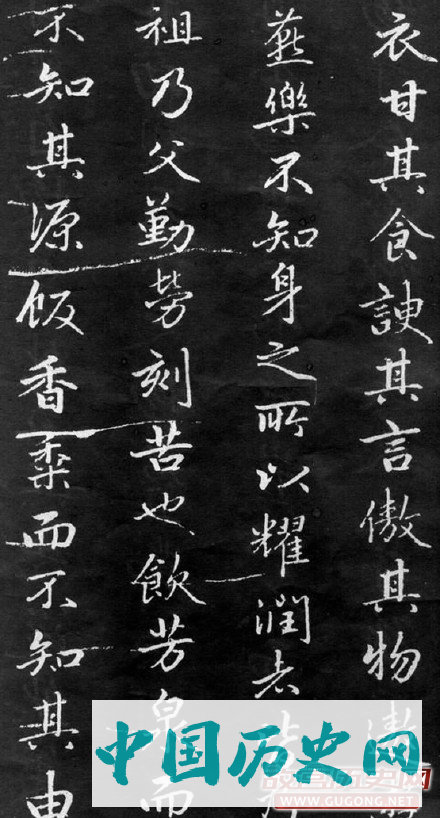 衣甘其食諛其言傲其物
燕樂不知身之所以耀潤者
祖乃父勤勞刻苦也飲芳泉而
不知其源飯香黍而不知其由
中国历史网
WWW.GUGONG.NET